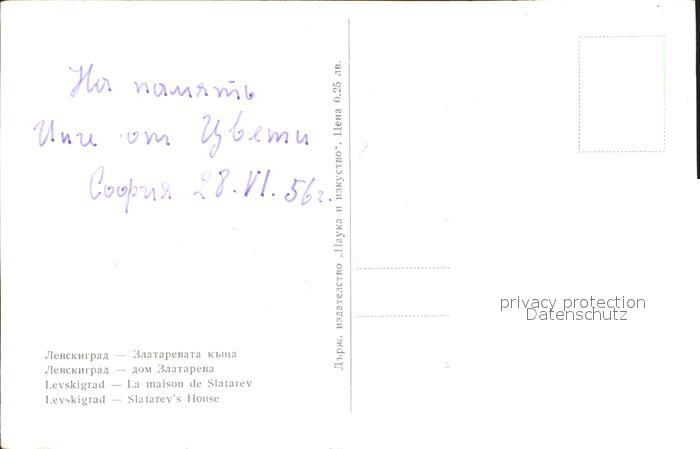 На память
Инге от Цвети
София 28.VI.56г.
Държ. издателство „Наука и изкуство“. Цена 0.25 лв.
privacy protection
Datenschutz
Левскиград — Златаревата къща
Левскиград — дом Златарева
Levskigrad — La maison de Slatarev
Levskigrad — Slatarev's House